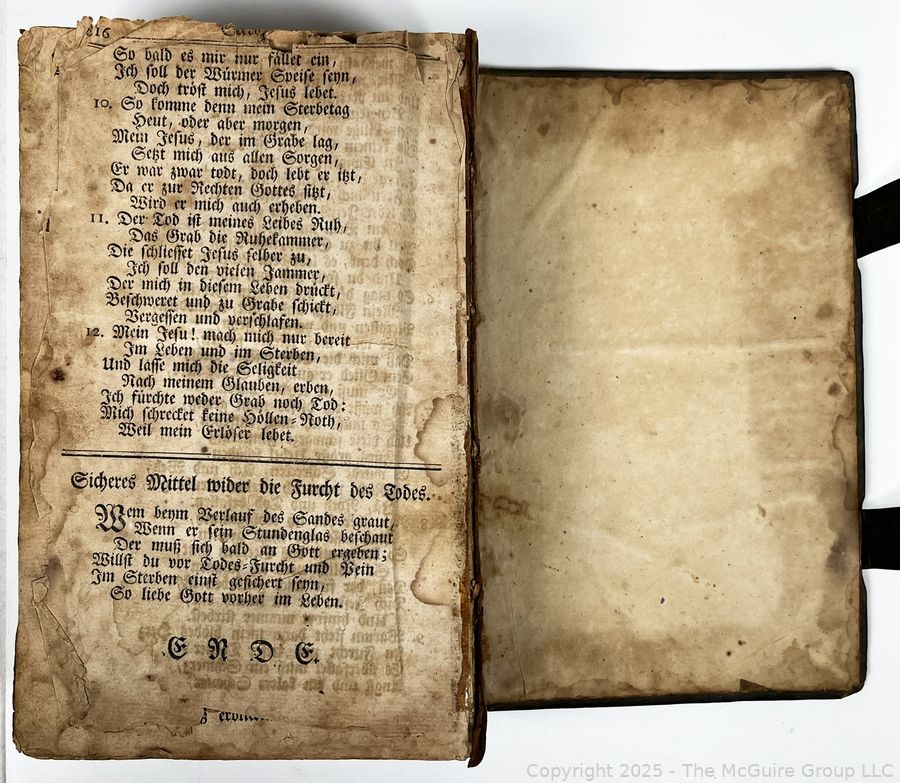 816
So bald es mir nur fället ein,
Ich soll der Würmer Speise seyn,
Doch tröst mich, Jesus lebet.
10. So komme denn mein Sterbetag
Heut, oder aber morgen,
Mein Jesus, der im Grabe lag,
Setzt mich aus allen Sorgen,
Er war zwar todt, doch lebt er itzt,
Da er zur Rechten Gottes sitzt,
Wird er mich auch erheben.
11. Der Tod ist meines Leibes Ruh,
Das Grab die Ruhekammer,
Die schliesset Jesus selber zu,
Ich soll den vielen Jammer,
Der mich in diesem Leben drückt,
Beschweret und zu Grabe schickt,
Vergessen und verschlafen.
12. Mein Jesu! mach mich nur bereit
Im Leben und im Sterben,
Und lasse mich die Seligkeit
Nach meinem Glauben, erben,
Ich fürchte weder Grab noch Tod:
Mich schrecket keine Höllen-Noth,
Weil mein Erlöser lebet.
Sicheres Mittel wider die Furcht des Todes.
Wem beym Verlauf des Sandes graut,
Wenn er sein Stundenglas beschaut
Der muß sich bald an Gott ergeben;
Willst du vor Todes-Furcht und Pein
Im Sterben einst gesichert seyn,
So liebe Gott vorher im Leben.
E N D E.
Copyright 2025 - The McGuire Group LLC